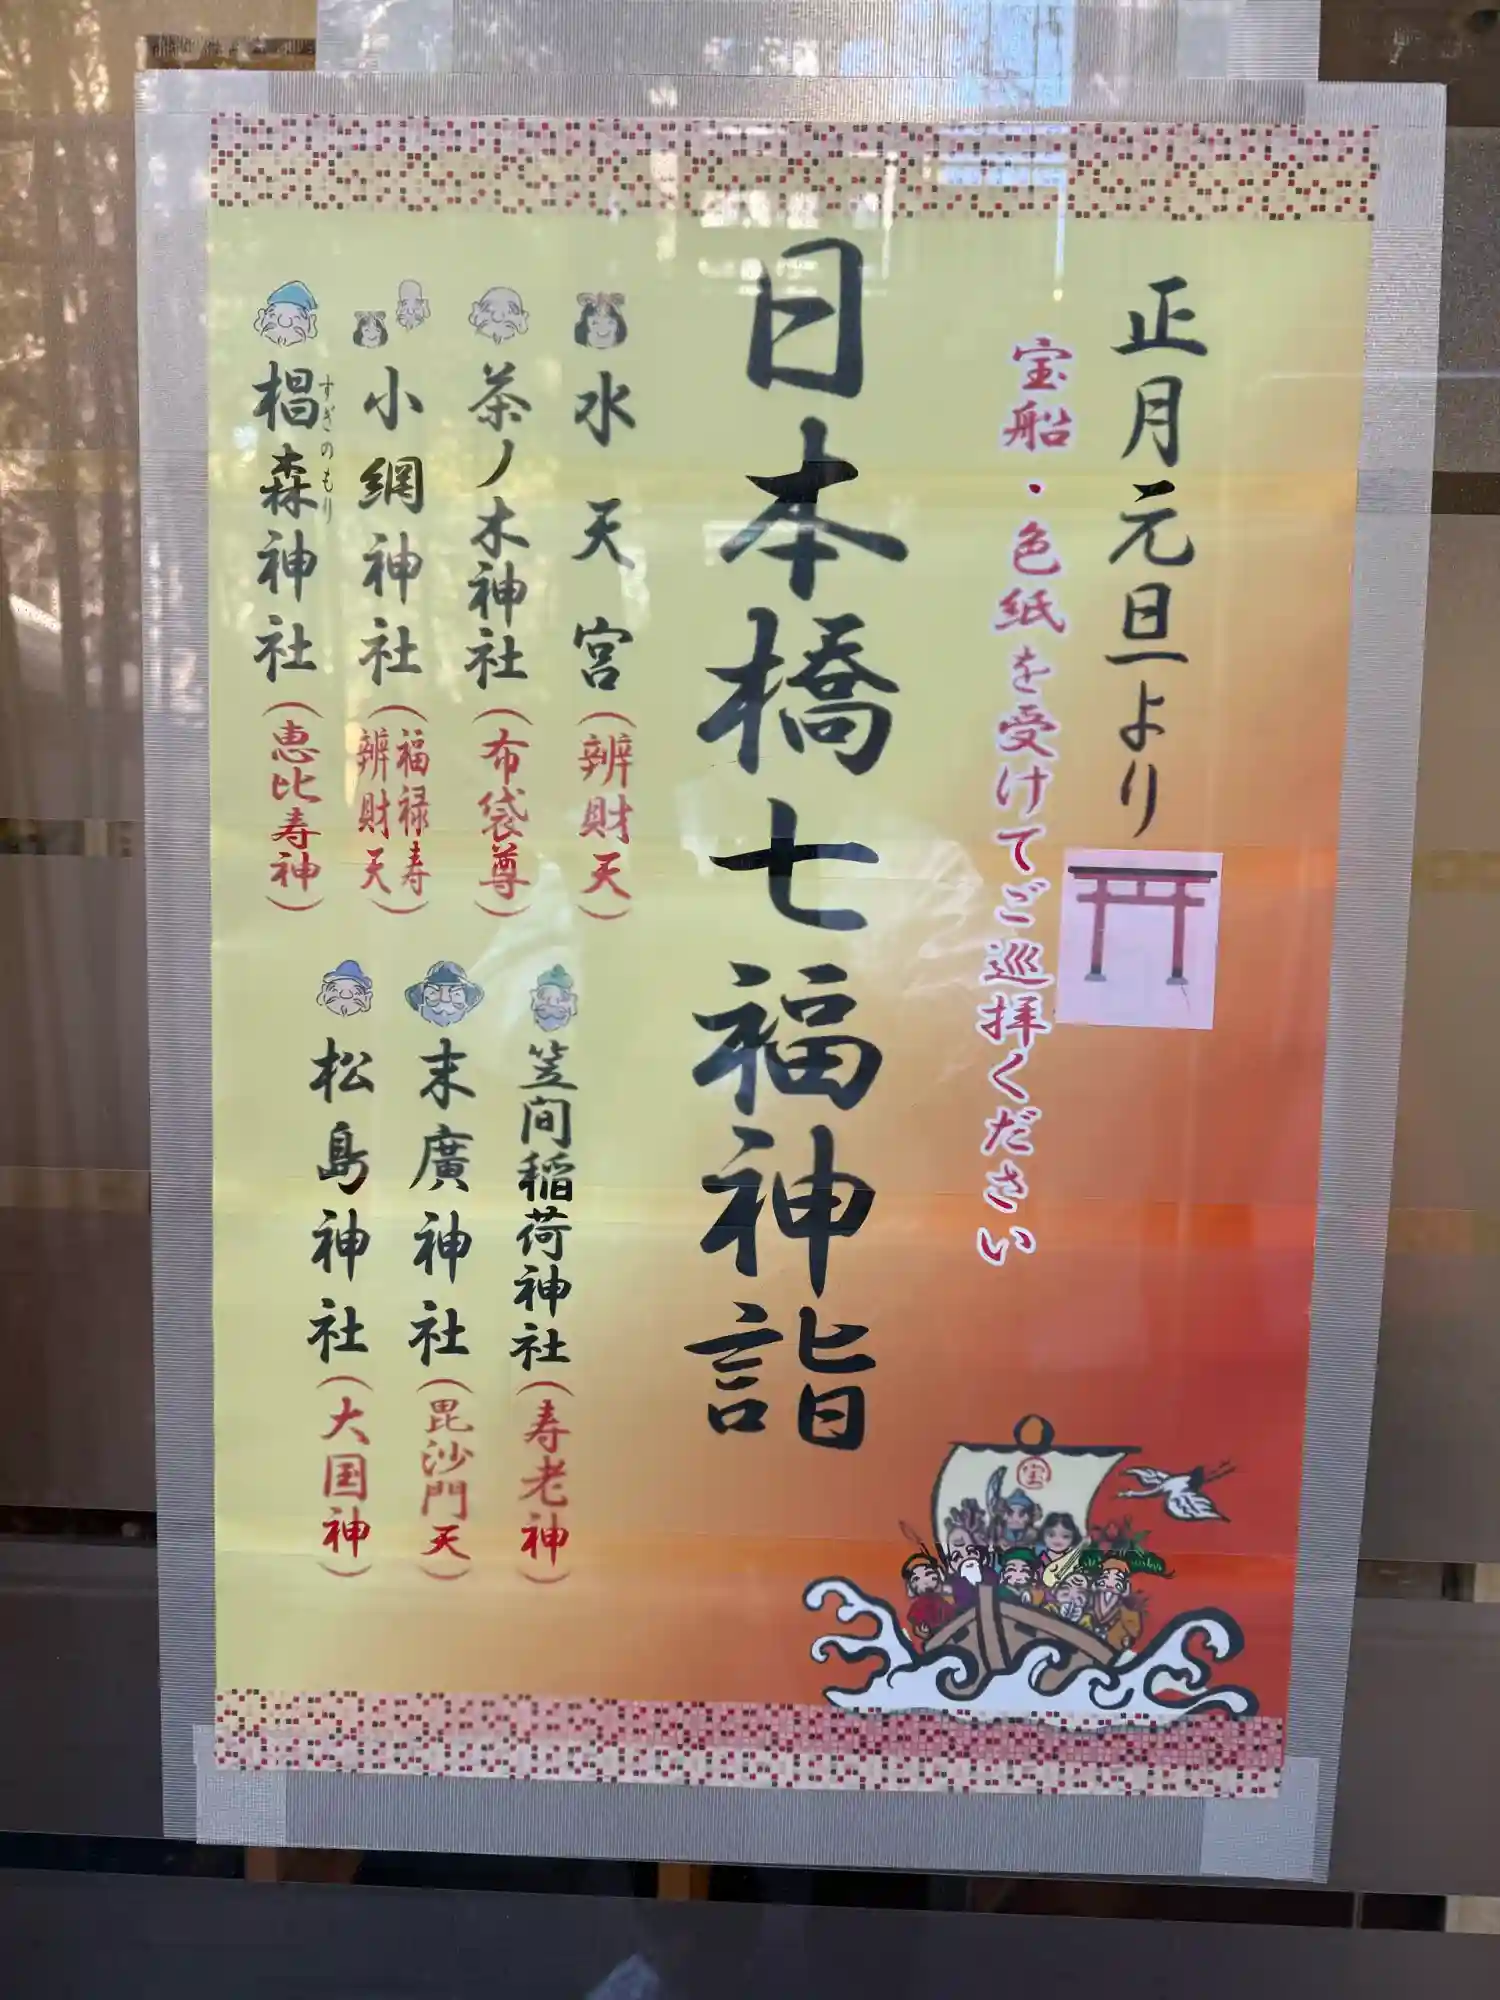 正月元旦より
宝船・色紙を受けてご巡拝ください
日本橋七福神詣
水天宮(辨財天)
茶ノ木神社(布袋尊)
小網神社(福禄寿 辨財天)
椙森神社(恵比寿神)
すぎのもり
笠間稲荷神社(寿老神)
末廣神社(毘沙門天)
松島神社(大国神)
宝